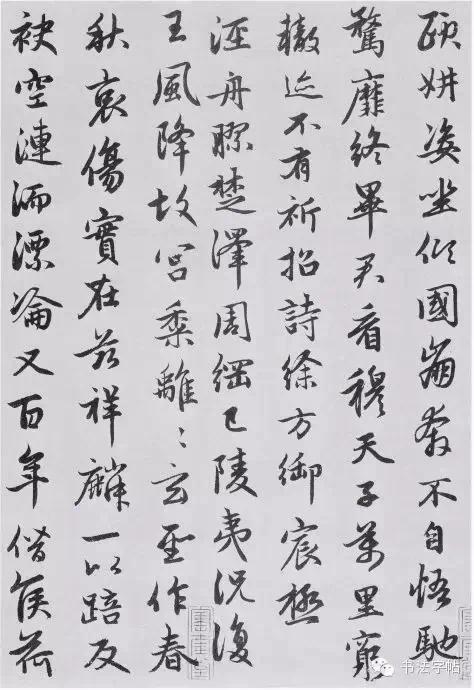 頤妍姿坐傾國崩奔不自悟馳
騖靡終畢君看穆天子萬里窮
轍迹不有祈招詩徐方御宸極
涇舟膠楚澤周綱已陵夷況復
王風降故宮黍離〻玄聖作春
秋哀傷實在茲祥麟一以踣反
袂空漣洏漂淪又百年僭侯荷
书法字帖